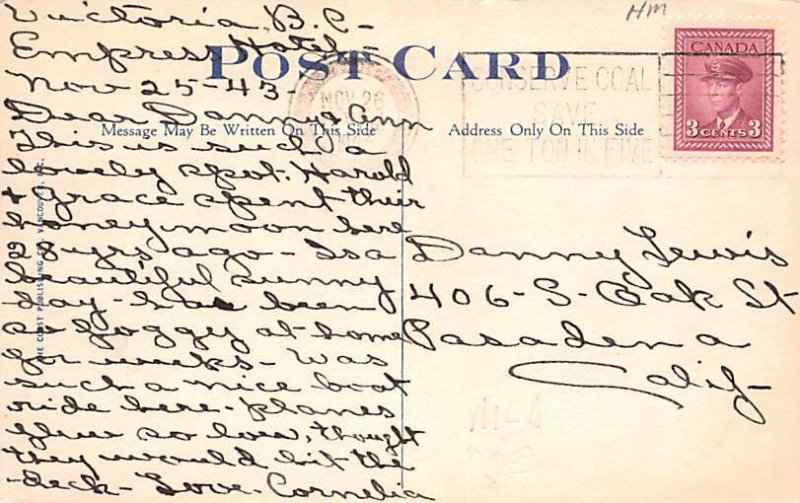 Victoria B.C.-
Empress Hotel-
Nov 25-43-
Dear Danny & Ann
This is such a
lovely spot. Harold
& Grace spent their
honeymoon here
28 yrs ago- Is a
beautiful sunny
day- has been
so foggy at home
for weeks- Was
such a nice boat
ride here- Planes
flew so low, thought
they would hit the
deck- Love- Cornelia
POST CARD
Message May Be Written On This Side
Address Only On This Side
THE COAST PUBLISHING CO. VANCOUVER, B.C.
HM
NOV 26
CONSERVE COAL
SAVE
ONE TON IN FIVE
CANADA
3 CENTS 3
Danny Lewis
406-S-Oak St
Pasadena
Calif-